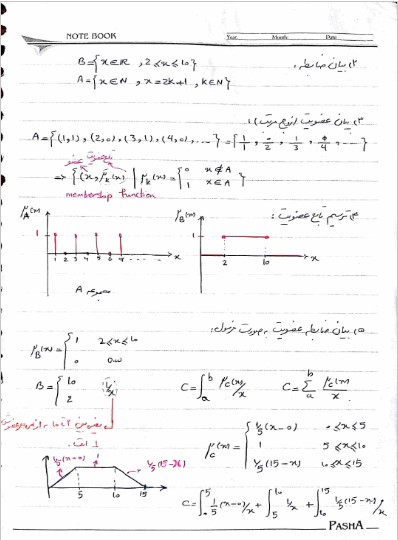 NOTE BOOK Year Month Date
۲) بیان ضابطه:
B={x∈R , 2≤x≤10}
A={x∈N , x=2k+1 , k∈N}
۳) بیان عضویت (زوج مرتب):
A={(1,1), (2,0), (3,1), (4,0), ...}={1/1, 0/2, 1/3, 0/4, ...}
تابع عضویت عضو
⇒ {(x, μ_A(x) | μ_A(x)={0 x∉A
1 x∈A}
membership function
۴) ترسیم تابع عضویت:
μ_A(x) μ_B(x)
1 1
1 2 3 4 5 6 7 ... x 2 10 x
مجموعه A
۵) بیان ضابطه عضویت به صورت فرمول:
μ_B(x)={1 2≤x≤10
0 o.w
B={10 1/x
2
C=∫_a^b μ_c(x)/x C=Σ_a^b μ_c(x)/x
μ_c(x)={1/5(x-0) 0≤x≤5
1 5≤x≤10
1/5(15-x) 10≤x≤15
1/5(x-0) 1 1/5(15-x)
5 10 15
C=∫_0^5 1/5(x-0)/x + ∫_5^10 1/x + ∫_10^15 1/5(15-x)/x
PASHA